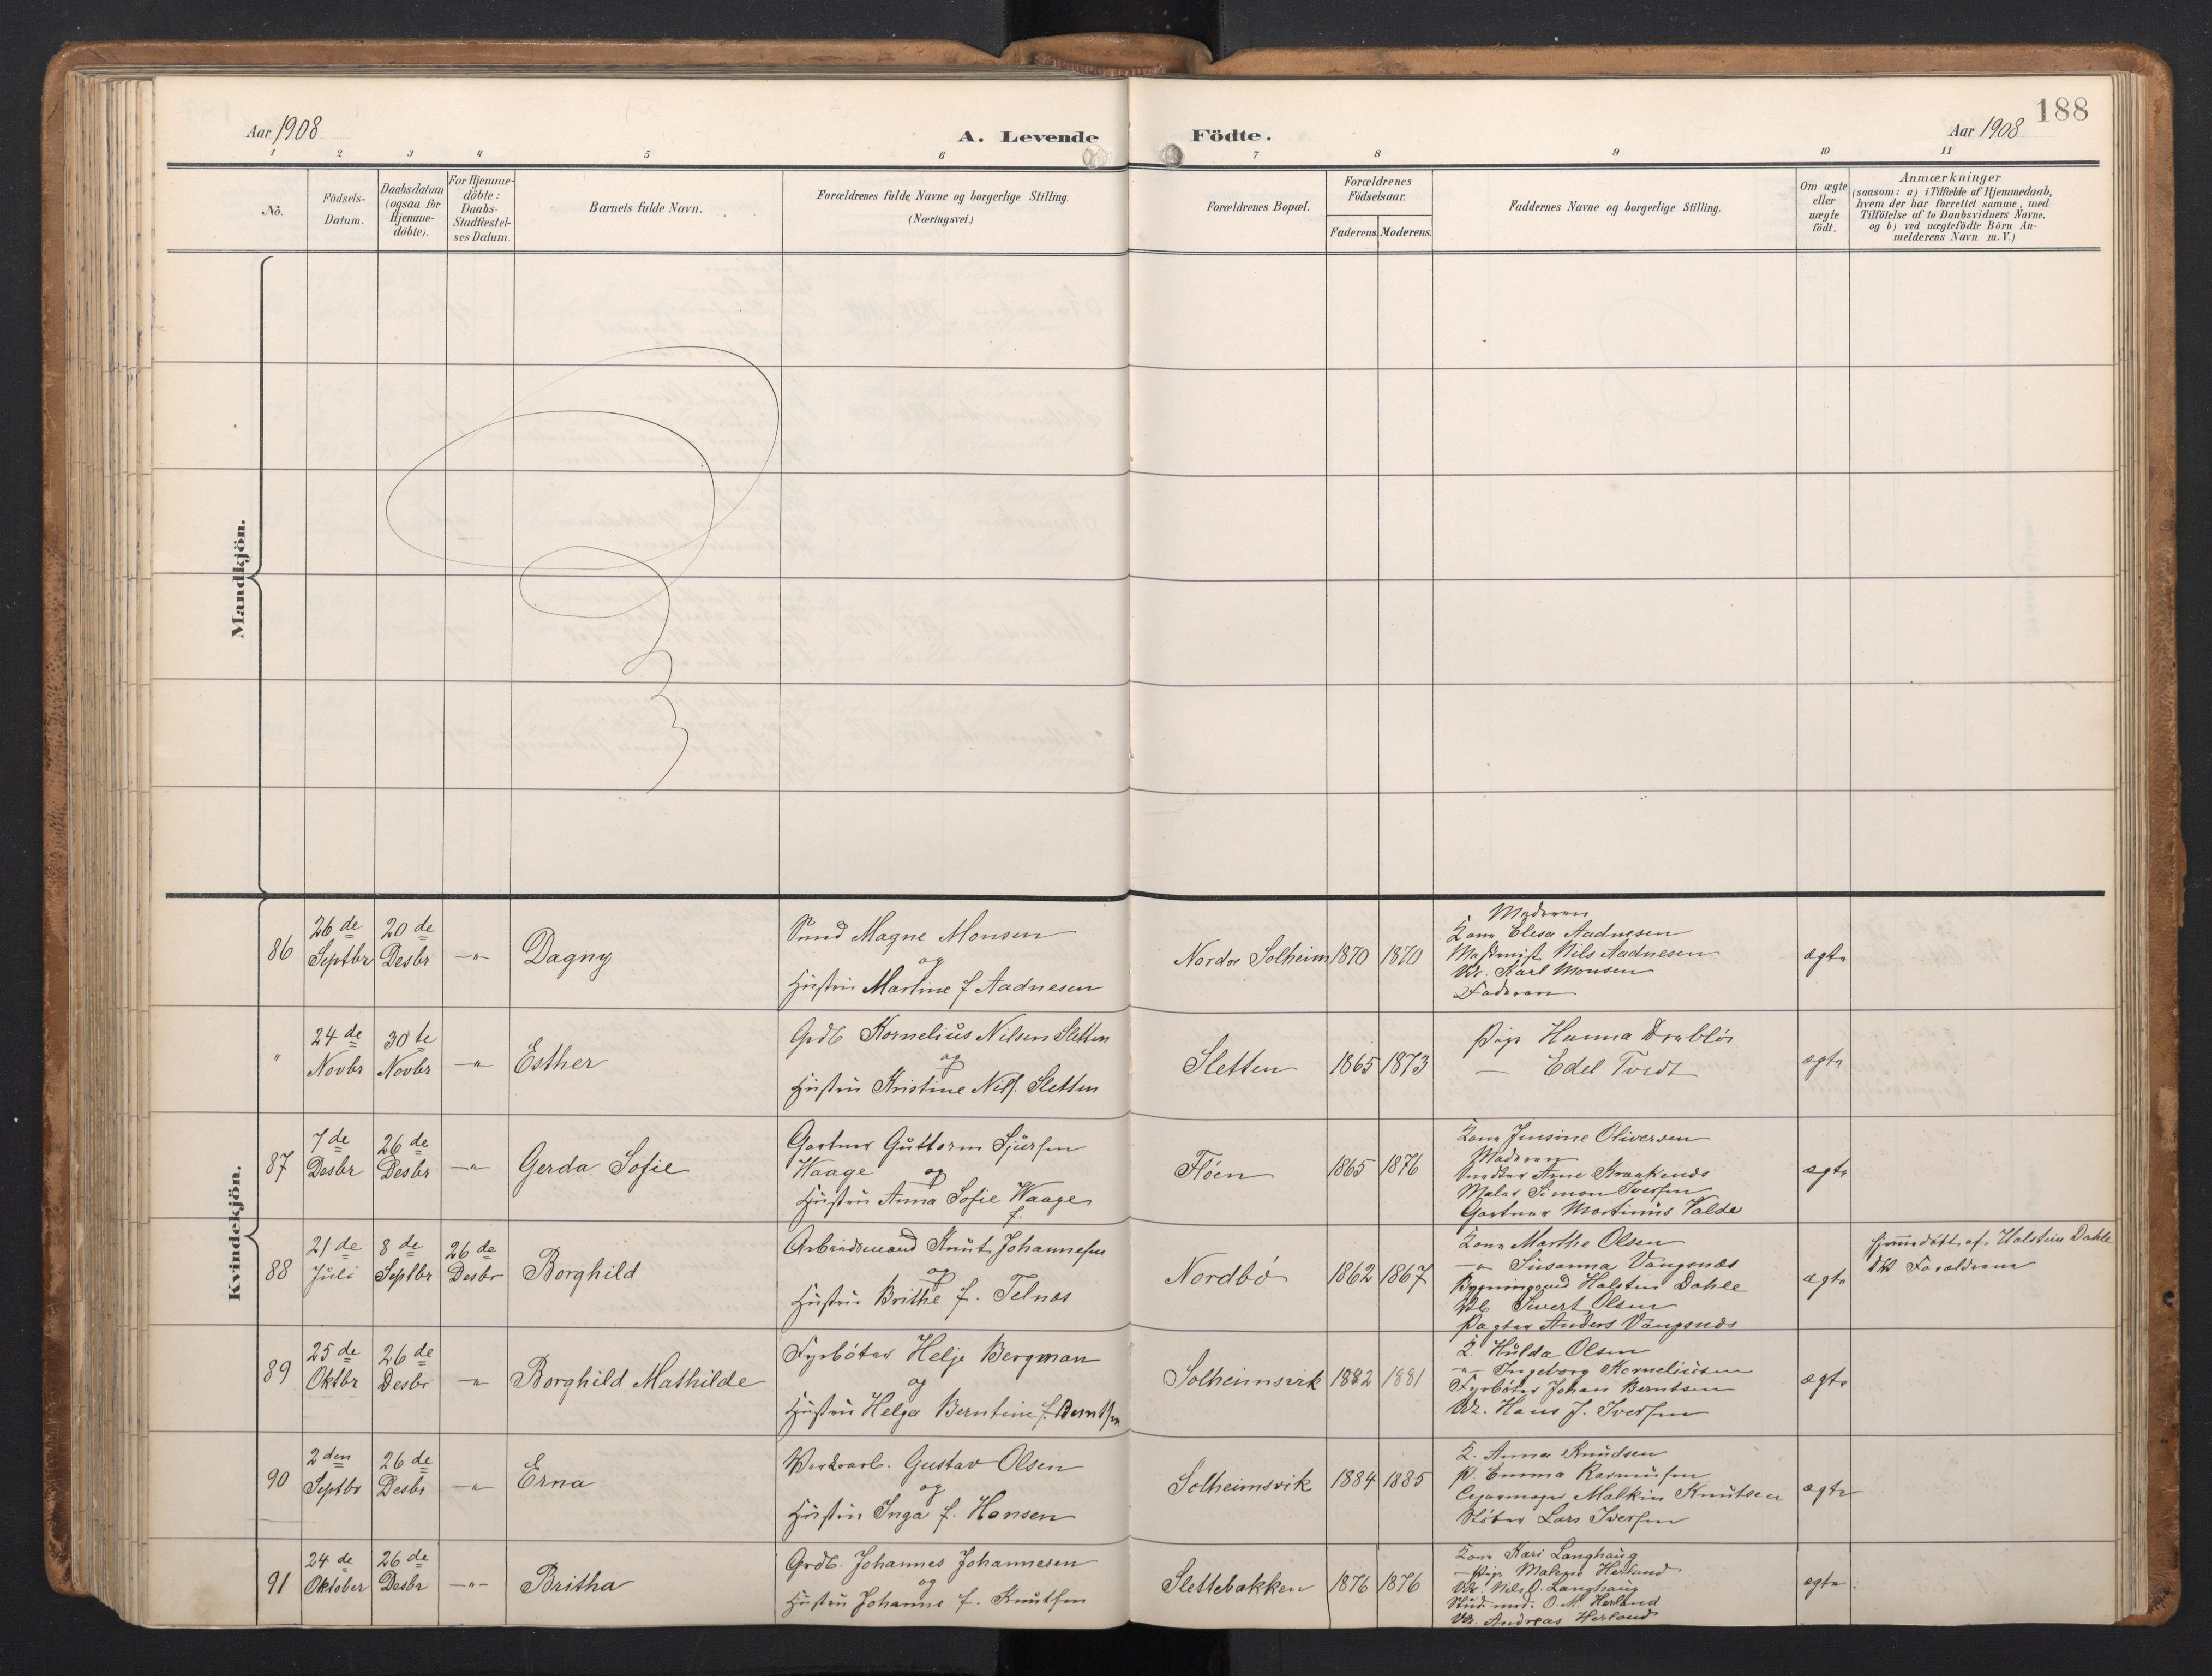 188
Aar 1908
A. Levende Födte.
Aar 1908
1 2 3 4 5 6 7 8 9 10 11
Nò.
Födsels-
Datum.
Daabsdatum
(ogsaa för
Hjemme-
döbte).
For Hjemme-
döbte:
Daabs-
Stadfæstel-
ses Datum.
Barnets fulde Navn.
Forældrenes fulde Navne og borgerlige Stilling.
(Næringsvei.)
Forældrenes Bopæl.
Forældrenes
Födselsaar.
Faderens. Moderens.
Faddernes Navne og borgerlige Stilling.
Om ægte
eller
uægte
födt.
Anmærkninger
(saasom: a) i Tilfælde af Hjemmedaab,
hvem der har forrettet samme, med
Tilföielse af to Daabsvidners Navne.
og b) ved uægtefödte Börn An-
melderens Navn m. V.)
Mandkjön.
Kvindekjön.
86
26 de
Septbr
20 de
Desbr
—"—
Dagny
Magne Monsen
og
Hustru Martine f. Aadnesen
Nordre Solheim
1870
1870
Moderen
Kone Elesa Aadnesen
Maskinist Nils Aadnesen
Karl Monsen
Faderen
ægte
"
24 de
Novbr
30 te
Novbr
—"—
Esther
Grdb. Kornelius Nilsen Sletten
og
Hustru Kristine Nilss. Sletten
Sletten
1865
1873
Pige Hanna Drabløs
— Edel Tvedt
ægte
87
7 de
Desbr
26 de
Desbr
—"—
Gerda Sofie
Gartner Guttorm Sjursen
Waage og
Hustru Anna Sofie Waage
f.
Flöen
1865
1876
Kone Jensine Oliversen
Moderen
Arne Kraakenæs
Maler Simon Iversen
Gartner Martinus Valde
ægte
88
21 de
Juli
8 de
Septbr
26 de
Desbr
Borghild
Arbeidsmand Knut Johannesen
og
Hustru Brithe f. Telnæs
Nordbö
1862
1867
Kone Marthe Olsen
—" Susanna Vangsnæs
Halsten Dahle
Sivert Olsen
Anders Vangsnæs
ægte
hjemmedöbt af Halstein Dahle
Forældrene
89
25 de
Oktbr
26 de
Desbr
—"
Borghild Mathilde
Fyrböter Helje Bergman
og
Hustru Helga Berntine f. Berntsen
Solheimsvik
1882
1881
K. Hulda Olsen
—"— Ingeborg Korneliusen
Fyrböter Johan Berntsen
Hans J. Iversen
ægte
90
2 den
Septbr
26 de
Desbr
—"—
Erna
Gustav Olsen
og
Hustru Inga f. Hansen
Solheimsvik
1884
1885
K. Anna Knudsen
P. Emma Rasmusen
Malkin Knutsen
Støber Lars Iversen
ægte
91
24 de
Oktober
26 de
Desbr
—"—
Britha
Grdb. Johannes Johannesen
og
Hustru Johanne f. Knutsen
Slettebakken
1876
1876
Kone Kari Langhaug
— Pige Malene Herland
Nils O. Langhaug
Stud. med. O. M. Herland
Andreas Herland
ægte